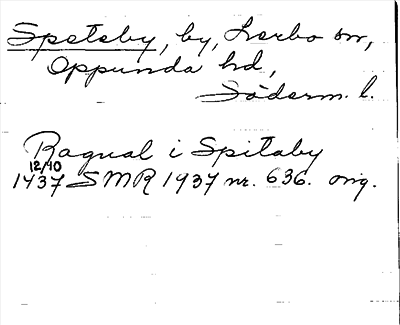 Spetsby, by, Lerbo sn,
Oppunda hd,
Söderm. l.
Ragual i Spitaby
12/10
1437 SMR 1937 nr. 636. orig.